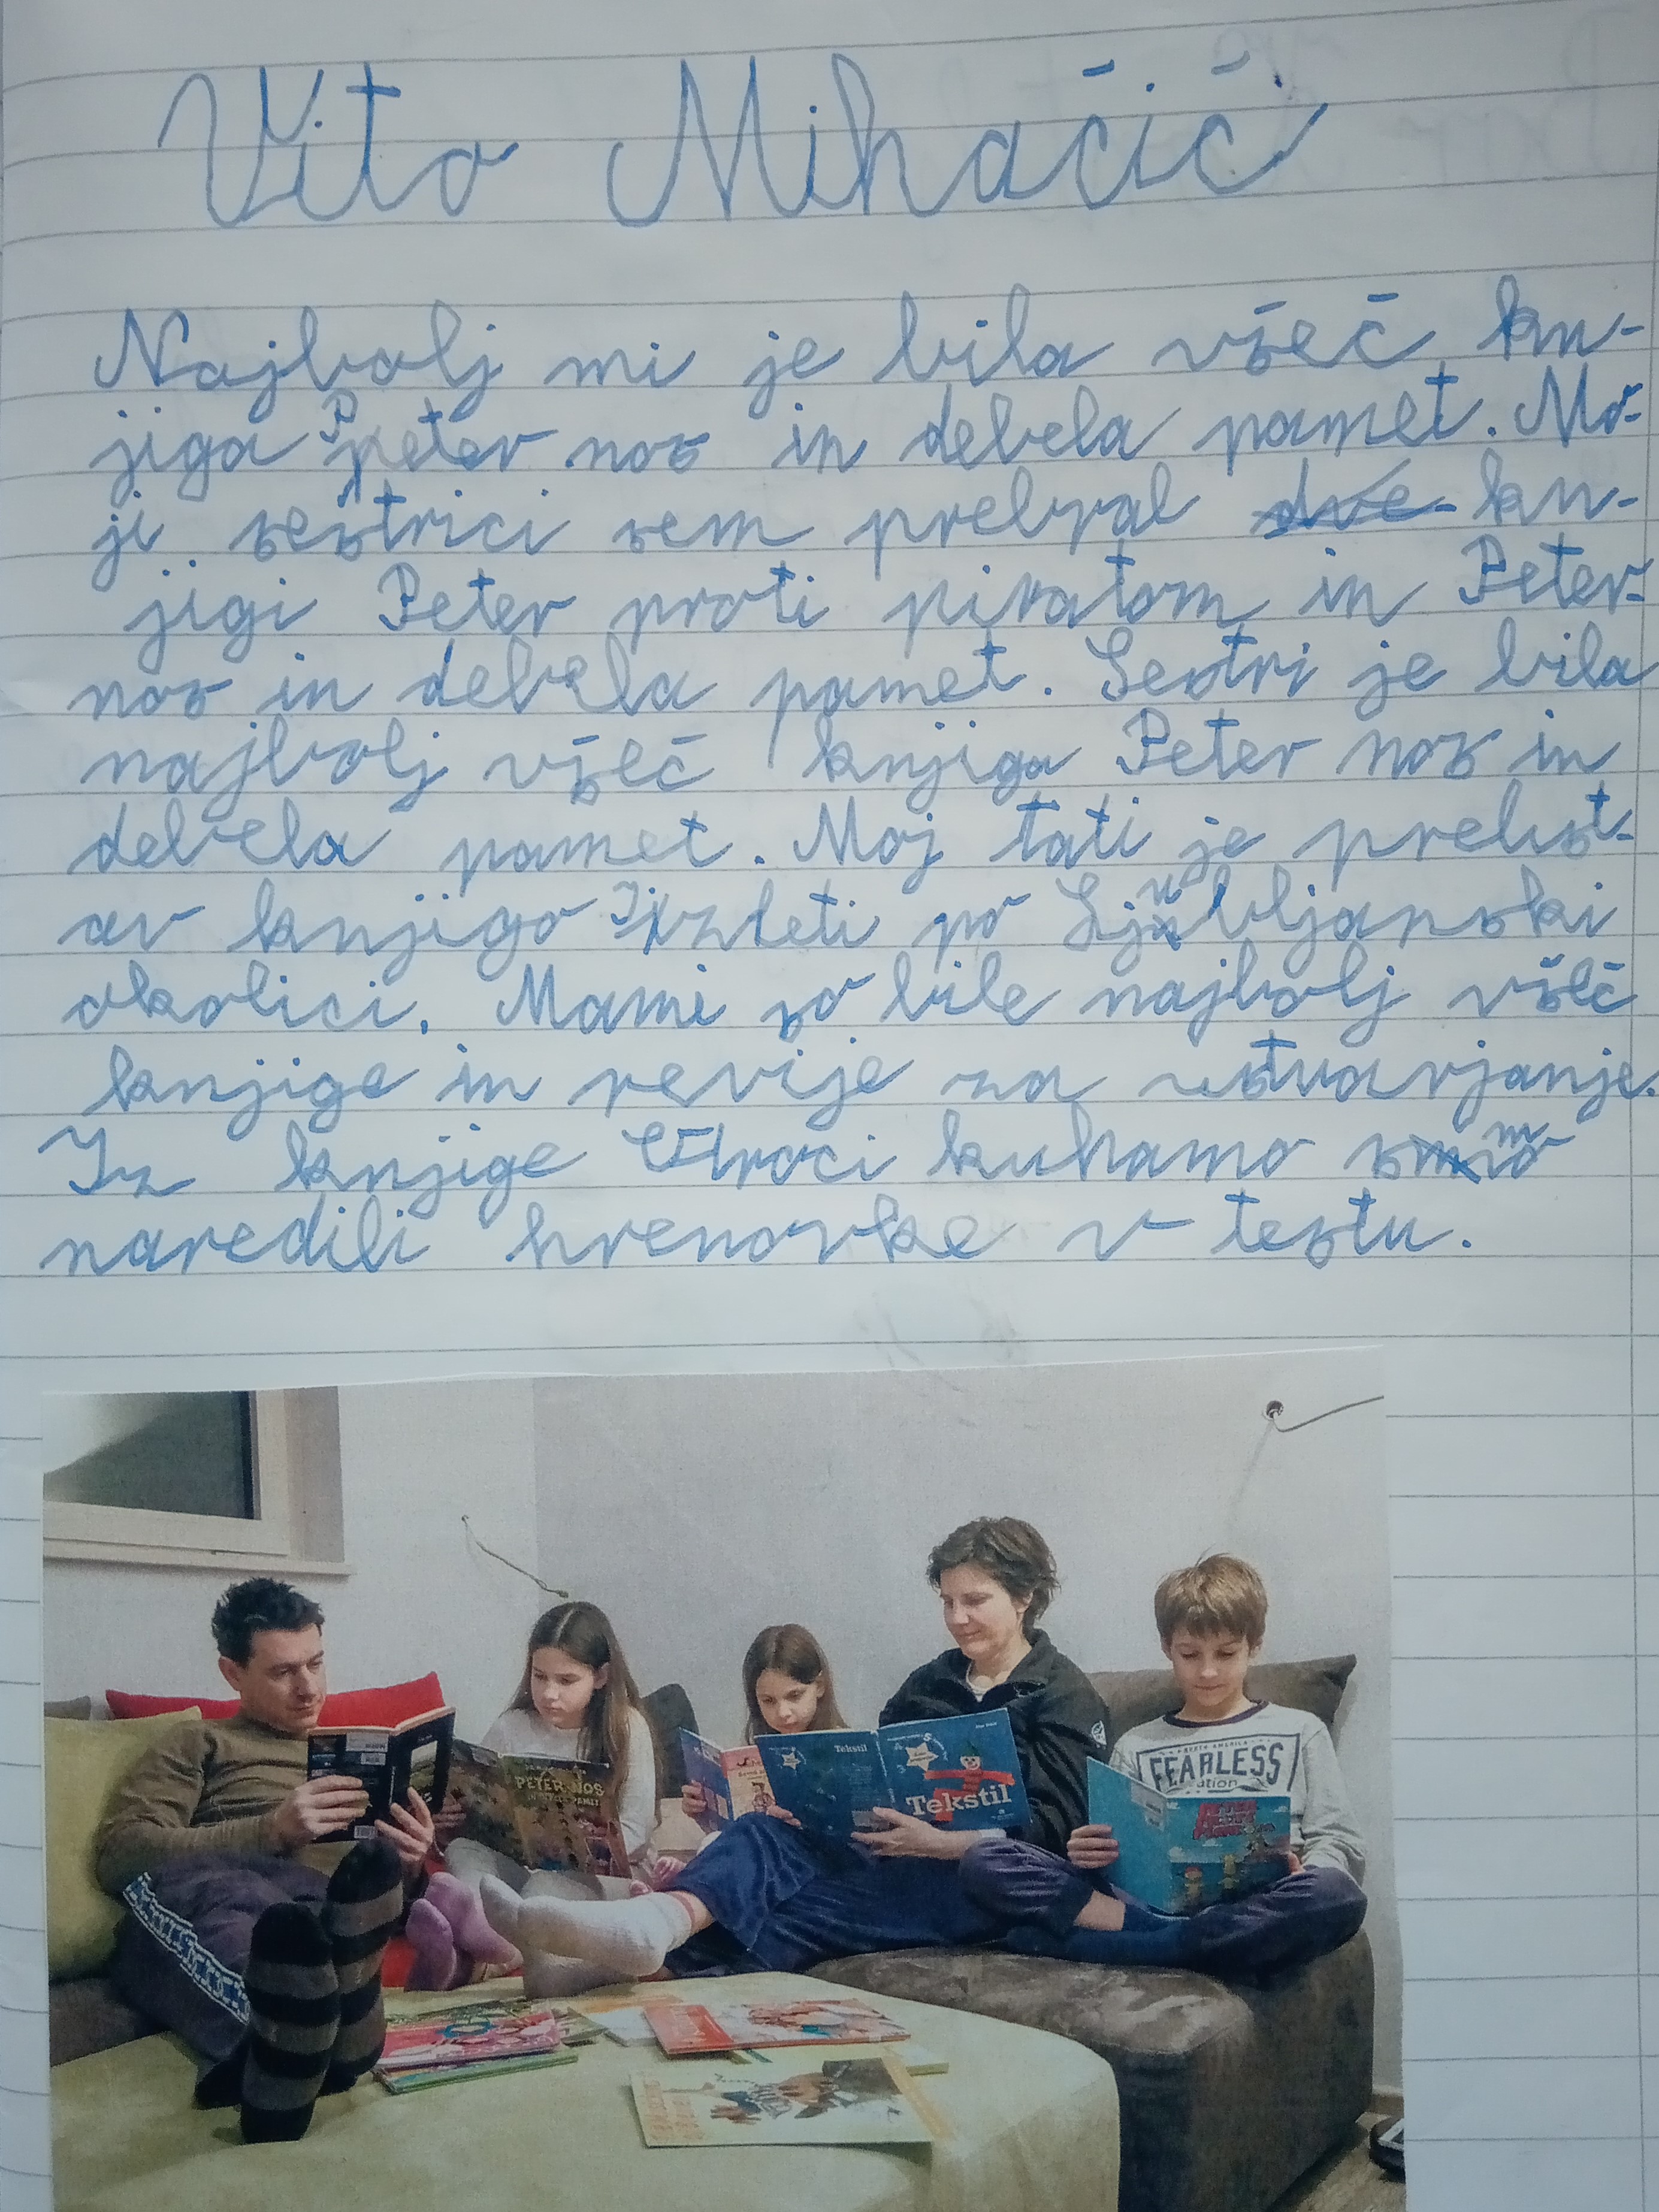 Vito Mihačič
Najbolj mi je bila všeč kn-
jiga Peter nos in debela pamet. Mo-
ji sestrici sem prebral dve kn-
jigi Peter proti piratom in Peter
nos in debela pamet. Sestri je bila
najbolj všeč knjiga Peter nos in
debela pamet. Moj tati je prelist-
av knjigo Izleti po Ljubljanski
okolici. Mami so bile najbolj všeč
knjige in revije za ustvarjanje.
Iz knjige Otroci kuhamo smo
naredili hrenovke v testu.
PETER NOS
IN DEBELA PAMET
Tekstil
Tekstil
FEARLESS